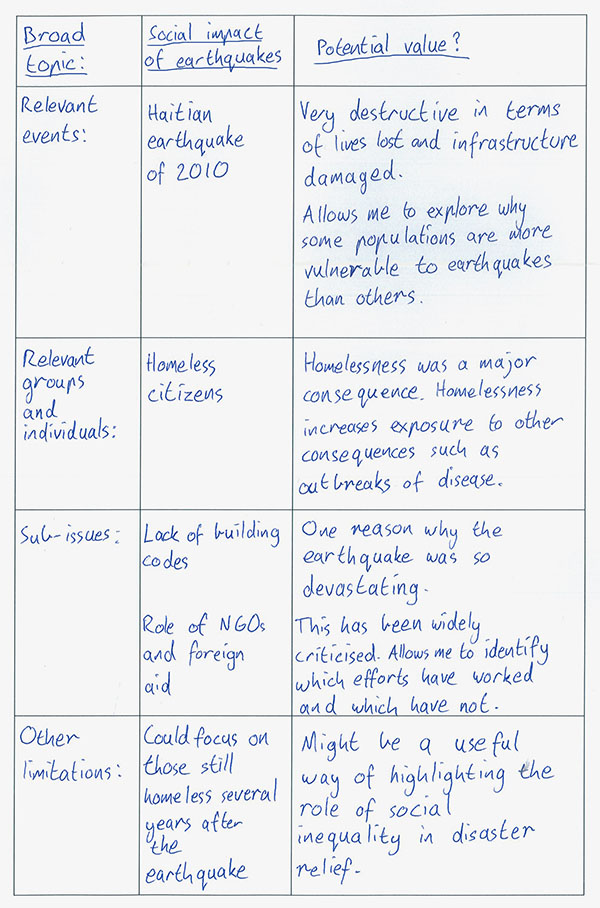 Broad
topic:
Social impact
of earthquakes
Potential value?
Relevant
events:
Haitian
earthquake
of 2010
Very destructive in terms
of lives lost and infrastructure
damaged.
Allows me to explore why
some populations are more
vulnerable to earthquakes
than others.
Relevant
groups
and
individuals:
Homeless
citizens
Homelessness was a major
consequence. Homelessness
increases exposure to other
consequences such as
outbreaks of disease.
Sub-issues:
Lack of building
codes
One reason why the
earthquake was so
devastating.
Role of NGOs
and foreign
aid
This has been widely
criticised. Allows me to identify
which efforts have worked
and which have not.
Other
limitations:
Could focus on
those still
homeless several
years after
the
earthquake
Might be a useful
way of highlighting the
role of social
inequality in disaster
relief.